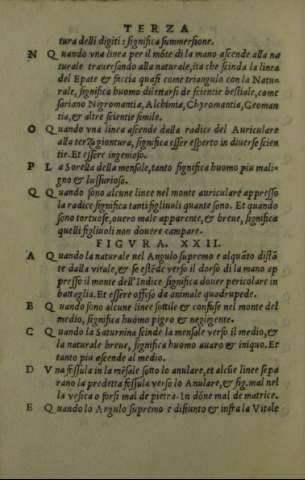 TERZA
tura delli digiti: significa summersione.
N Quando vna linea per il mōte di la mano ascende alla na
turale trauersando alla naturale, ita che scinda la linea
del Epate & faccia quasi come triangulo con la Natu-
rale, significa huomo dilettarsi de scientie bestiale, come
sariano Nigromantia, Alchimia, Chyromantia, Geoman
tia, & altre scientie simile.
O Quando vna linea ascende dalla radice del Auriculare
alla terza giontura, significa esser esperto in diuerse scien
tie. Et essere ingenioso.
P La Sorella della mensale, tanto significa huomo piu mali-
gno & lussurioso.
Q Quando sono alcune linee nel monte auriculare appresso
la radice significa tanti figliuoli quante sono. Et quando
sono tortuose, ouero male apparente, & breue, significa
quelli figliuoli non douere campare.
FIGVRA. XXII.
A Quando la naturale nel Angulo supremo e alquāto distā
te dalla vitale, & se estēde verso il dorso di la mano ap
presso il monte dell'Indice significa douer pericolare in
battaglia. Et essere offeso da animale quadrupede.
B Quando sono alcune linee sottile & confuse nel monte del
medio, significa huomo pigro & negligente.
C Quando la Saturnina scinde la mensale verso il medio, &
la naturale breue, significa huomo auaro & iniquo. Et
tanto piu ascende al medio.
D Vna fossula in la mēsale sotto lo anulare, et alcūe linee sepa
rano la predetta fossula verso lo Anulare, & sig. mal nel
la vesica o forsi mal de pietra. In dōne mal de matrice.
E Quando lo Angulo supremo e disiunto & infra la Vitale